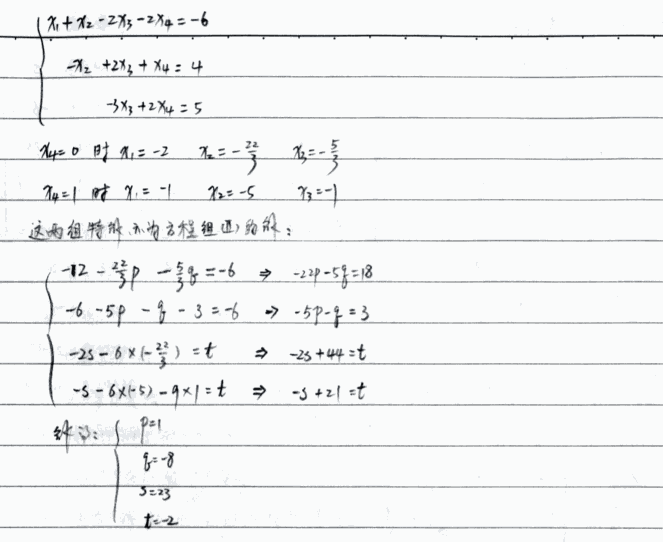 x₁+x₂-2x₃-2x₄=-6
-x₂+2x₃+x₄=4
-3x₃+2x₄=5
x₄=0 时 x₁=-2 x₂=-22/3 x₃=-5/3
x₄=1 时 x₁=-1 x₂=-5 x₃=-1
这两组特解亦为方程组(II)的解:
-12-22/3p-5/3q=-6 ⇒ -22p-5q=18
-6-5p-q-3=-6 ⇒ -5p-q=3
-2s-6×(-22/3)=t ⇒ -2s+44=t
-s-6×(-5)-9×1=t ⇒ -s+21=t
解之: p=1
q=-8
s=23
t=-2